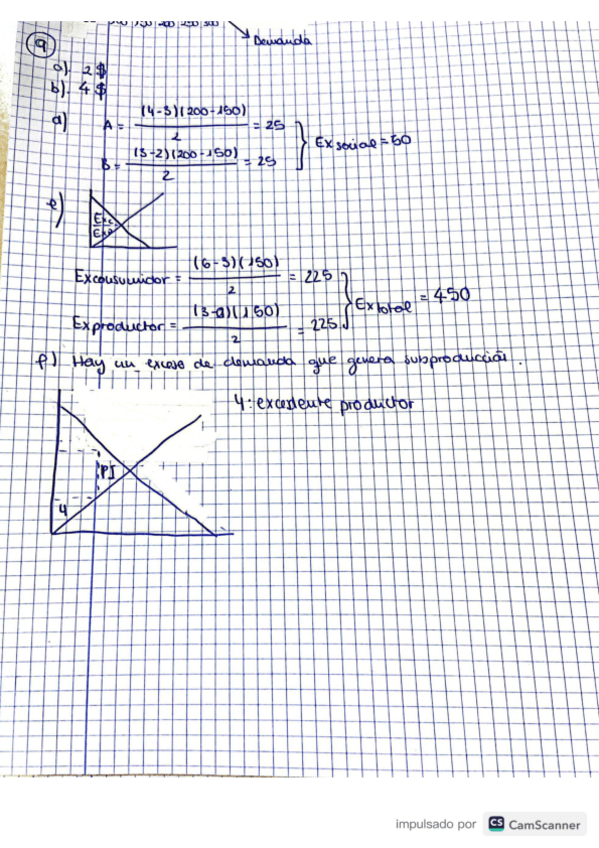 Demanda
9
a). 2$
b). 4$
d) A = (4-3)(200-150) / 2 = 25
B = (3-2)(200-150) / 2 = 25
Ex social = 50
e) Exc.
Exp
Exconsumidor = (6-3)(150) / 2 = 225
Exproductor = (3-0)(150) / 2 = 225
Ex total = 450
f) Hay un exceso de demanda que genera subproducción.
4: excedente productor
PI
4
impulsado por CS CamScanner